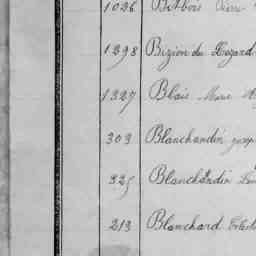 1026 Bitbois Pierre
1298 Bizion du Lézard
1327 Blais Marie
303 Blanchandin
325 Blanchandin
213 Blanchard